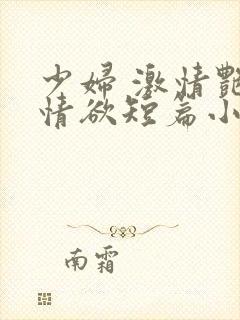 少婦激情艷
情欲短篇小
南霜